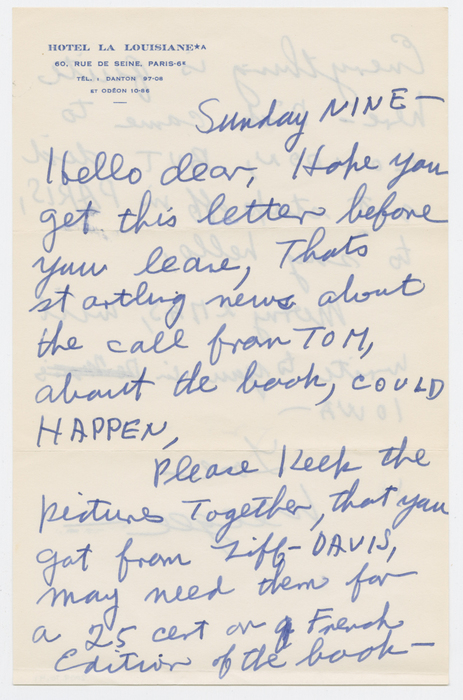 HOTEL LA LOUISIANE★★A
60, RUE DE SEINE, PARIS-6e
TÉL. : DANTON 97-08
ET ODÉON 10-86
Sunday NINE—
Hello dear, Hope you
get this letter before
you leave, Thats
startling news about
the call from TOM,
about the book, COULD
HAPPEN,
Please Keep the
pictures Together, that you
got from Ziff-DAVIS,
may need them for
a 25 cent or French
Edition of the book—